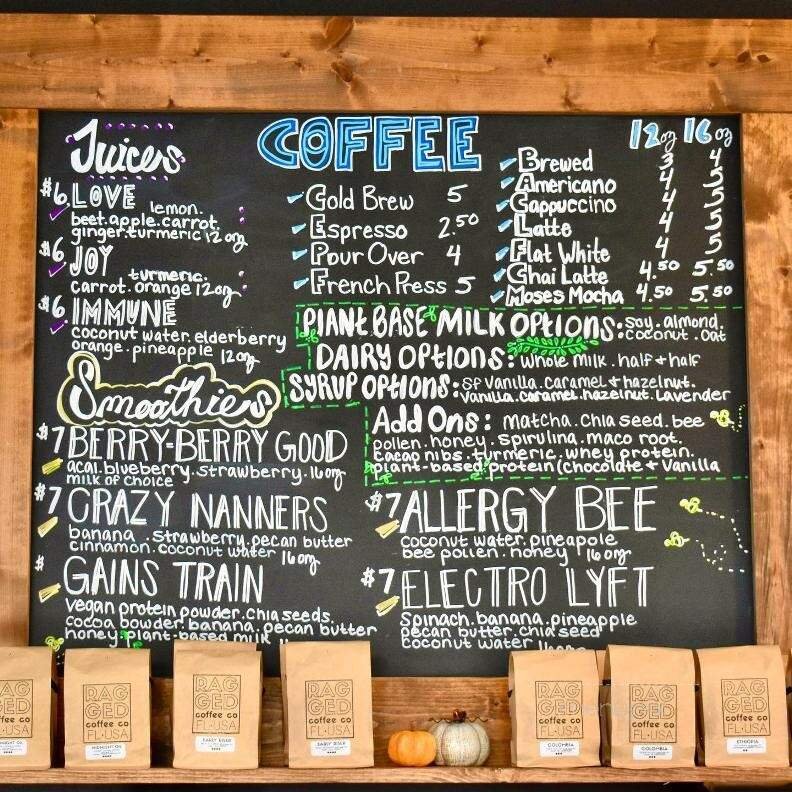 Juices
$6 LOVE lemon.
beet.apple.carrot.
ginger.turmeric 12oz
$6 JOY turmeric.
carrot.orange 12oz
$6 IMMUNE
coconut water.elderberry
orange.pineapple 12oz
Smoothies
$7 BERRY-BERRY GOOD
acai.blueberry.strawberry.16oz
milk of choice
$7 CRAZY NANNERS
banana.strawberry.pecan butter
cinnamon.coconut water 16oz
$ GAINS TRAIN
vegan protein powder.chia seeds.
cocoa powder.banana.pecan butter
honey.plant-based milk
COFFEE
Cold Brew 5
Espresso 2.50
Pour Over 4
French Press 5
12oz 16oz
Brewed 3 4
Americano 4 5
Cappuccino 4 5
Latte 4 5
Flat White 4 5
Chai Latte 4.50 5.50
Moses Mocha 4.50 5.50
PlANT BASE MILK OPTIONS: soy.almond.
coconut.oat
DAIRY OPTIONS: whole milk.half & half
SYRUP OPTIONS: SF vanilla.caramel & hazelnut.
vanilla.caramel.hazelnut.lavender
Add Ons: matcha.chia seed.bee
pollen.honey.spirulina.maco root.
cacao nibs.turmeric.whey protein.
plant-based protein (chocolate & vanilla
$7 ALLERGY BEE
coconut water.pineapple
bee pollen.honey 16oz
$7 ELECTRO LYFT
spinach.banana.pineapple
pecan butter.chia seed
coconut water
RAG
GED
coffee co
FL•USA
RAG
GED
coffee co
FL•USA
MIDNIGHT OIL
RAG
GED
coffee co
FL•USA
EARLY RISER
RAG
GED
coffee co
FL•USA
EARLY RISER
RAG
GED
coffee co
FL•USA
COLOMBIA
RAG
GED
coffee co
FL•USA
COLOMBIA
RAG
GED
coffee co
FL•USA
ETHIOPIA